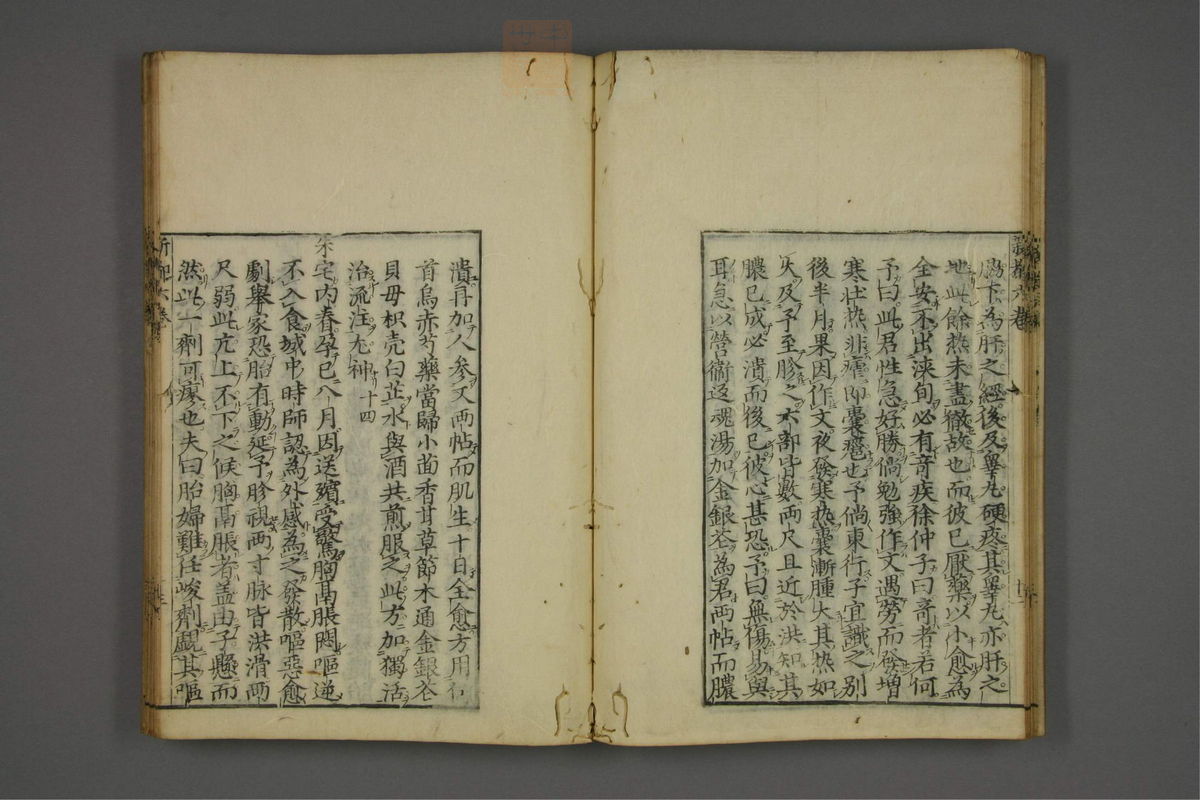 脇下為肝之經後及睾丸硬疼其睾丸亦肝之
地此餘熱未盡徹故也而彼已厭藥以小愈為
全安不出浹旬必有奇疾徐仲子曰奇者若何
予曰此君性急好勝倘勉強作文遇勞而發增
寒壯熱非瘧即囊癰也予倘東行子宜識之別
後半月果因作文夜發寒熱囊漸腫大其熱如
火及予至膝之下部皆數兩尺且近於洪知其
膿已成必潰而後已彼心甚恐予曰無傷易與
耳急以營衛返魂湯加金銀花為君兩帖而膿
潰再加人參又兩帖而肌生十日全愈方用何
首烏赤芍藥當歸小茴香甘草節木通金銀花
貝母枳壳白芷水與酒共煎服之此方加獨活
治流注尤神 十四
朱宅內眷孕已八月因送殯受驚胸膈脹悶嘔逆
不入食城中時師認為外感為之發散嘔惡愈
劇舉家恐胎有動延予診視兩寸脉皆洪滑兩
尺弱此亢上不下之候胸膈脹者盖由子懸而
然此一劑可瘳也夫曰胎婦難任峻劑覷其嘔